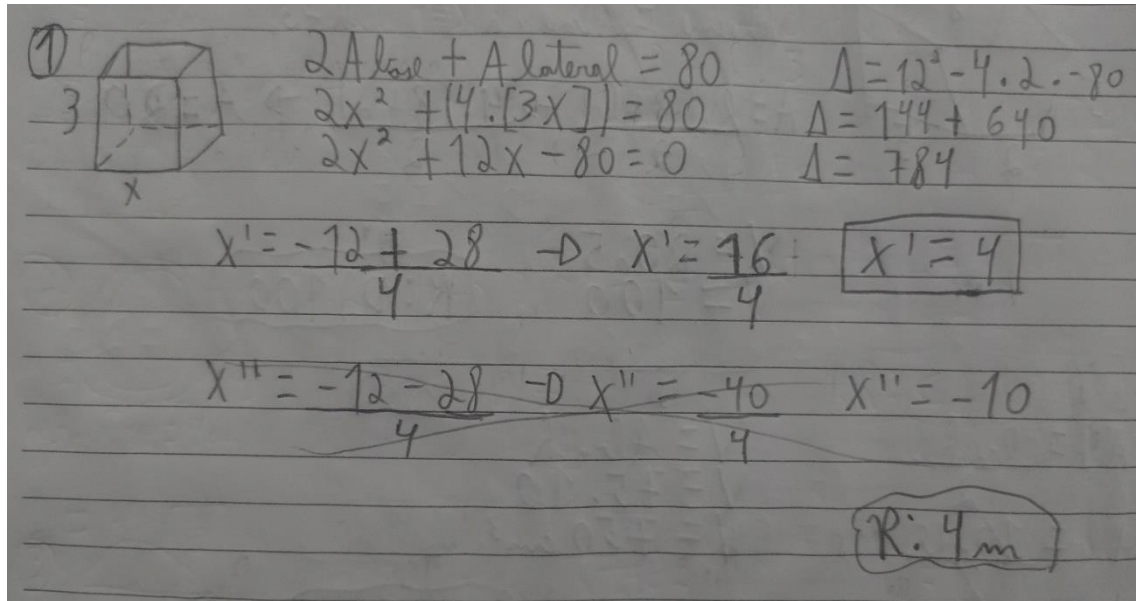 1
2 A base + A lateral = 80
2x² + (4.[3x]) = 80
2x² + 12x - 80 = 0
3
x
Δ = 12² - 4.2.-80
Δ = 144 + 640
Δ = 784
x' = -12 + 28 / 4 → x' = 16 / 4 x' = 4
x'' = -12 - 28 / 4 → x'' = -40 / 4 x'' = -10
R: 4m